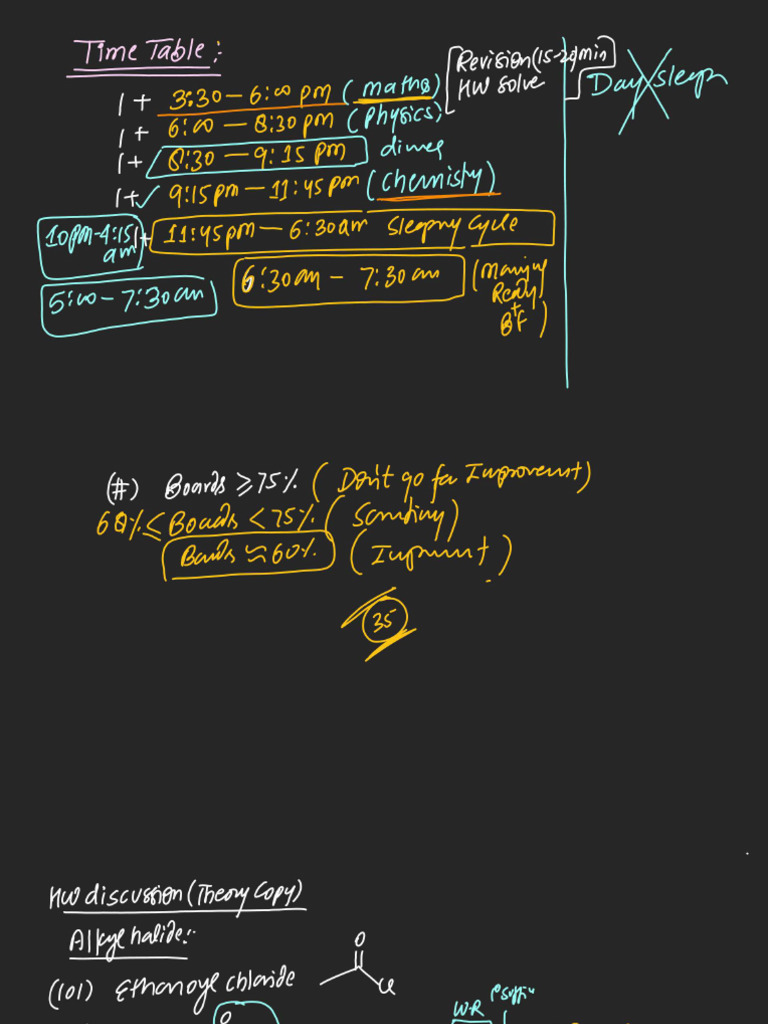 Time Table:
Revision (15-20 min
HW solve
Day sleep
1+ 3:30 – 6:00 pm (maths)
1+ 6:00 – 8:30 pm (Physics)
1+ 8:30 – 9:15 pm dinner
1+ ✓ 9:15 pm – 11:45 pm (chemistry)
10pm-4:15 am
1+ 11:45 pm – 6:30 am Sleeping Cycle
5:00 – 7:30 am
6:30 am – 7:30 am (
Ready
+
BF)
(#) Boards ≥ 75% (Don't go for Improvement)
60% ≤ Boards < 75% (
Boards ≈ 60% (
35
HW discussion (Theory Copy)
Alkyl halide:-
(101) Ethanoyl chloride
O
Cl
O
WR